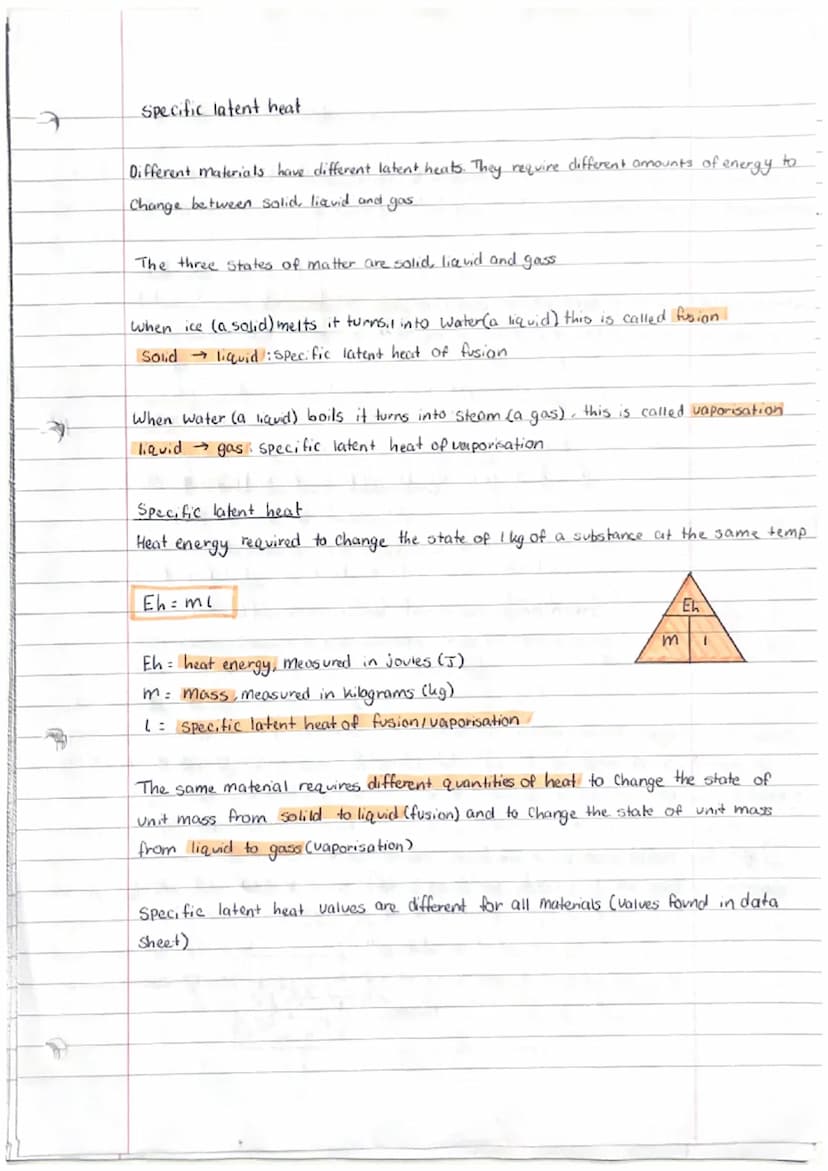 Specific latent heat
Different materials have different latent heats. They require different amounts of energy to
change between solid, liquid and gas
The three states of matter are solid, liquid and gass
When ice (a solid) melts it turns into water (a liquid) this is called fusion
Solid → liquid : specific latent heat of fusion
When water (a liquid) boils it turns into steam (a gas), this is called vaporisation
liquid → gas : specific latent heat of vaporisation
Specific latent heat
Heat energy required to change the state of 1 kg of a substance at the same temp
Eh = ml
Eh
m l
Eh = heat energy, measured in joules (J)
m = mass, measured in kilograms (kg)
l = specific latent heat of fusion/vaporisation
The same material requires different quantities of heat to change the state of
unit mass from solild to liquid (fusion) and to change the state of unit mass
from liquid to gass (vaporisation)
Specific latent heat values are different for all materials (values found in data
sheet)